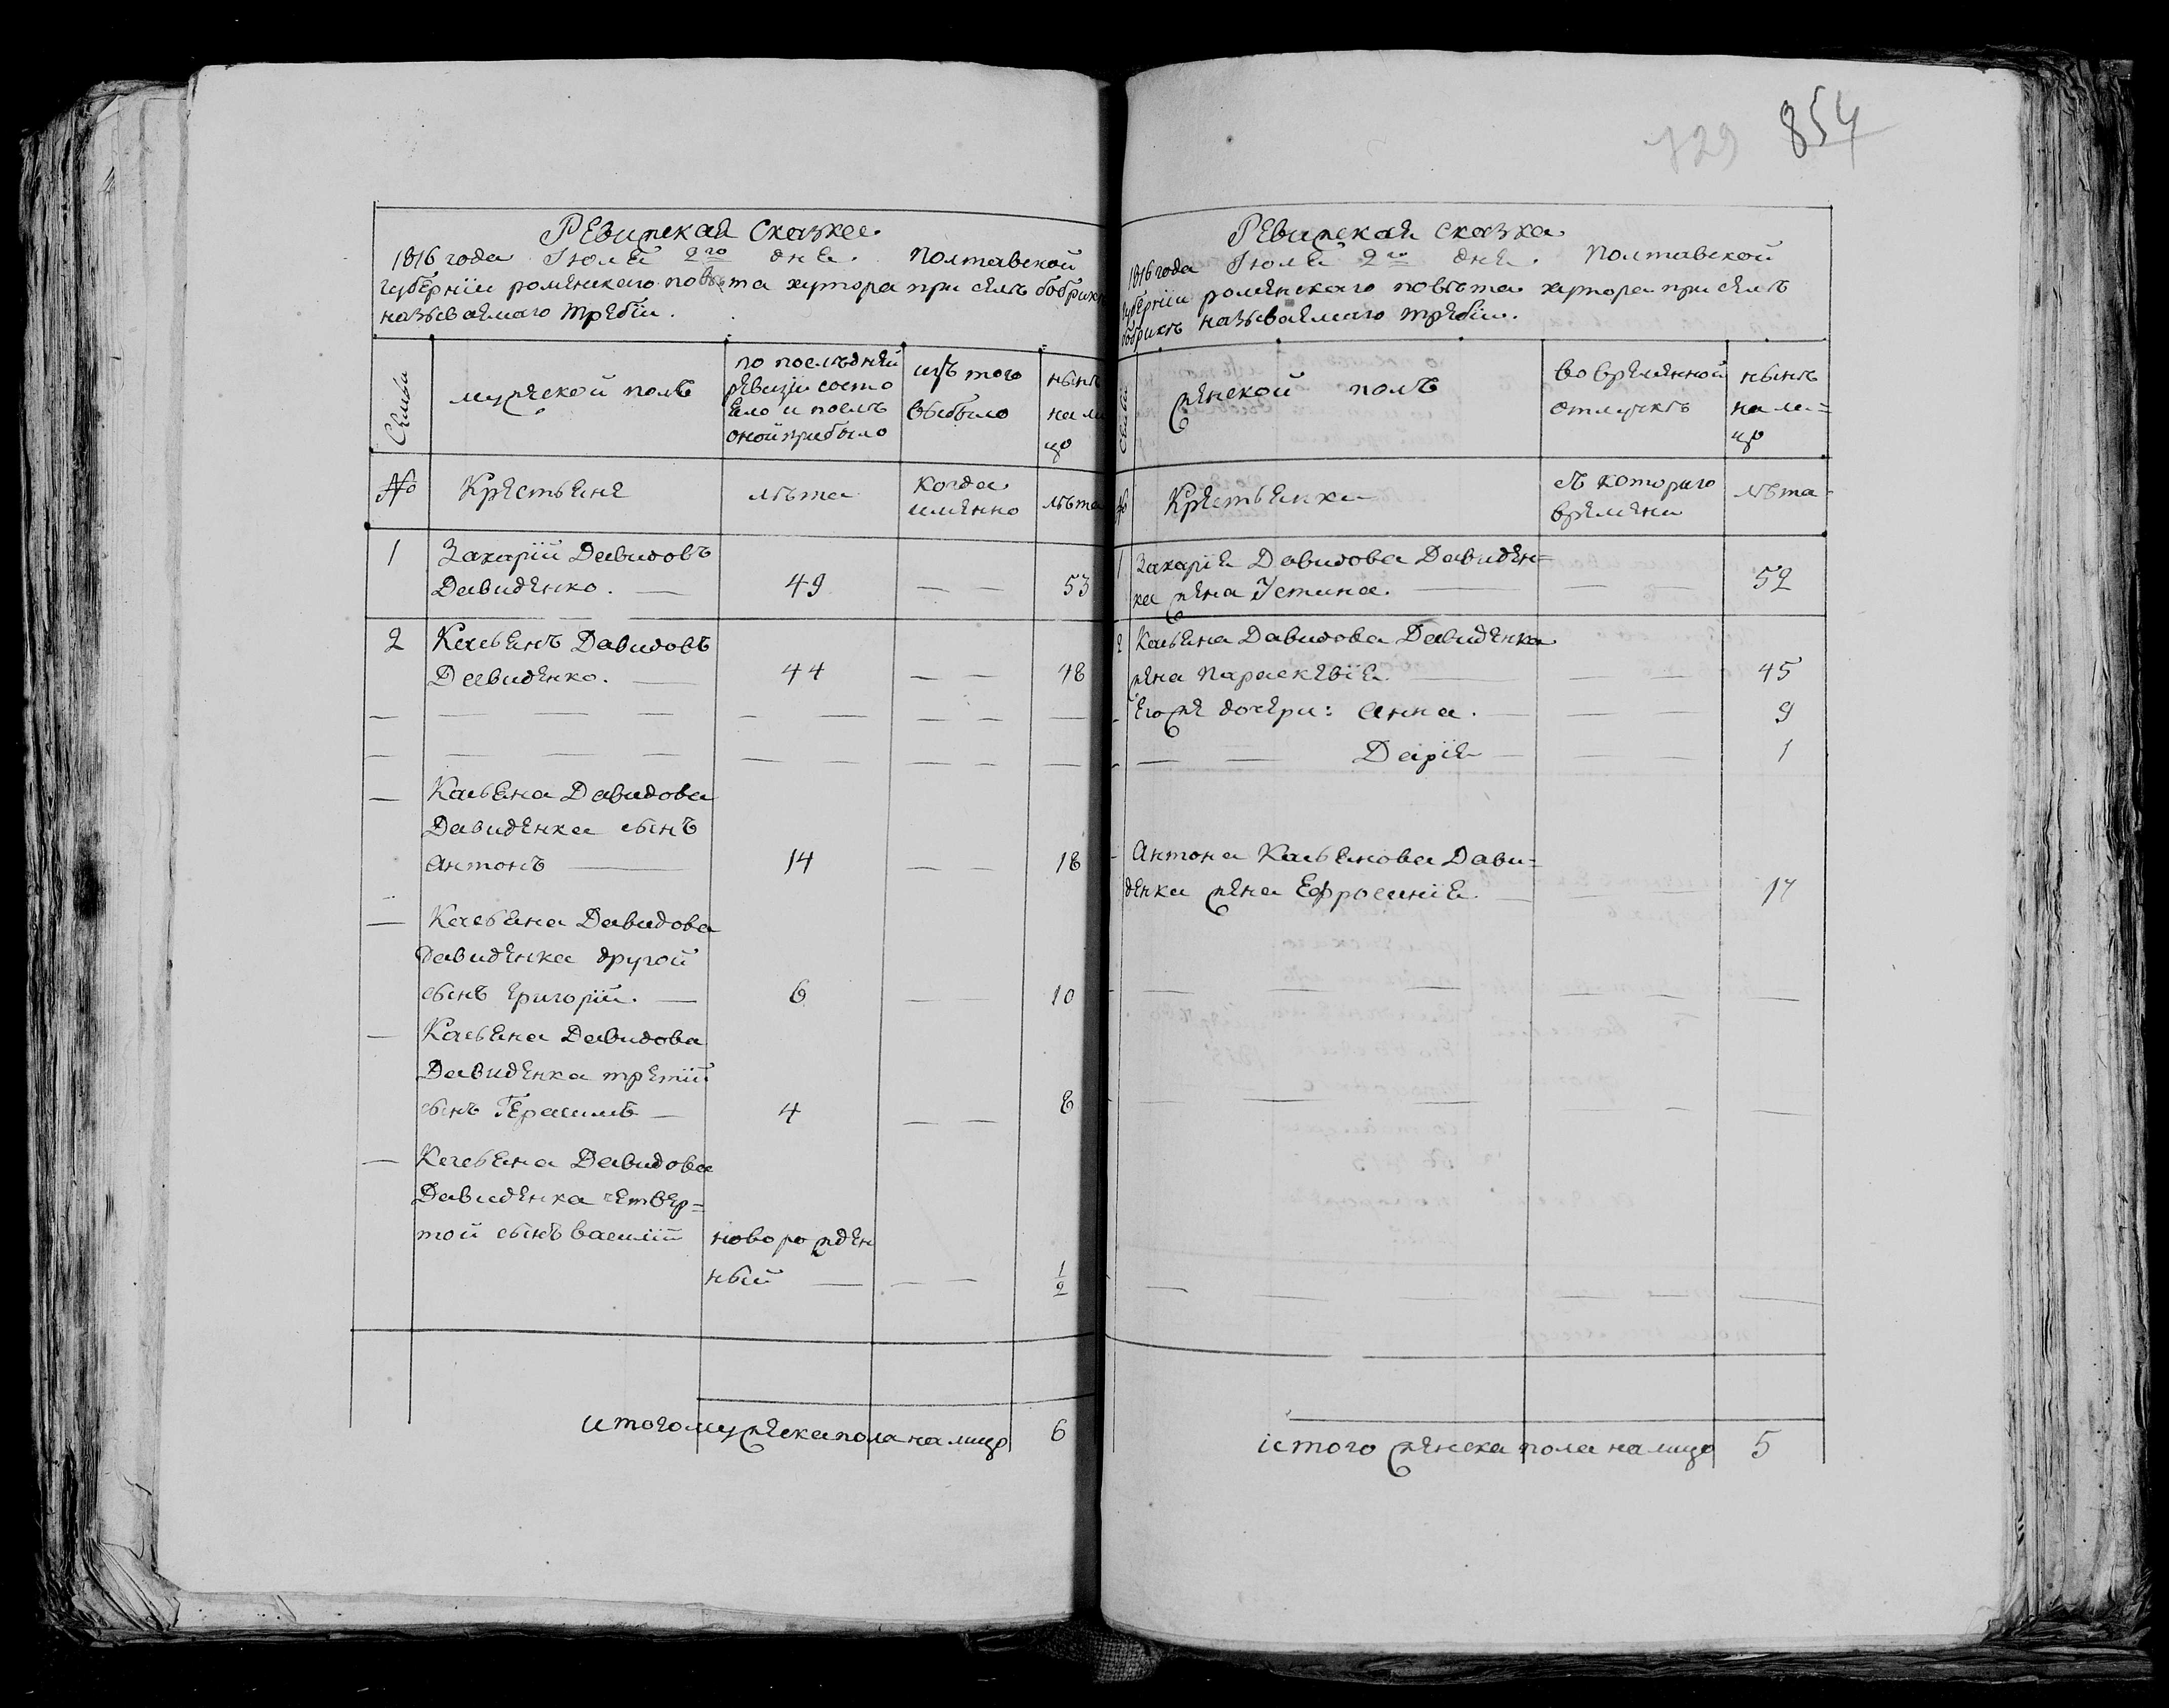 Ревижская сказка.
1816 года Іюля 2го дня. Полтавской
губерніи роменскаго повѣта хутора при селѣ бобрикѣ
называемаго Требіи.
Семьи
мужеской полъ
по послѣдней
ревизіи состо
яло и послѣ
оной прибыло
изъ того
выбыло
нынѣ
на ли
цо
№
Крестьяне
лѣта
когда
именно
лѣта
1
Захарій Давидовъ
Давиденко. 49 — — 53
2
Касьянъ Давидовъ
Давиденко. 44 — — 48
— Касьяна Давидова
Давиденка сынъ
антонъ 14 — — 18
— Касьяна Давидова
давиденка другой
сынъ григорій. 6 — 10
— Касьяна Давидова
Давиденка третій
сынъ Герасимъ 4 — — 8
— Касьяна Давидова
Давиденка четвер=
той сынъ василій новорожден
ный — — 1/2
итого мужеска пола на лицо 6
729 854
Ревижская сказка
1816 года Іюля 2го дня. Полтавской
губерніи роменскаго повѣта хутора при селѣ
бобрикѣ называемаго требіи.
Семьи
женской полъ
во временной
отлучкѣ
нынѣ
на ли=
цо
№
Крестьянки
съ котораго
времени
лѣта
1 Захарія Давидова Давиден=
ка жена Устина. — — 52
2 Касьяна Давидова Давиденка
жена параскевія — — 45
Его же дочери: анна. — — 9
— — Дарія — — 1
Антона Касьянова Дави=
денка жена Ефросинія. — — 17
итого женска пола на лицо 5